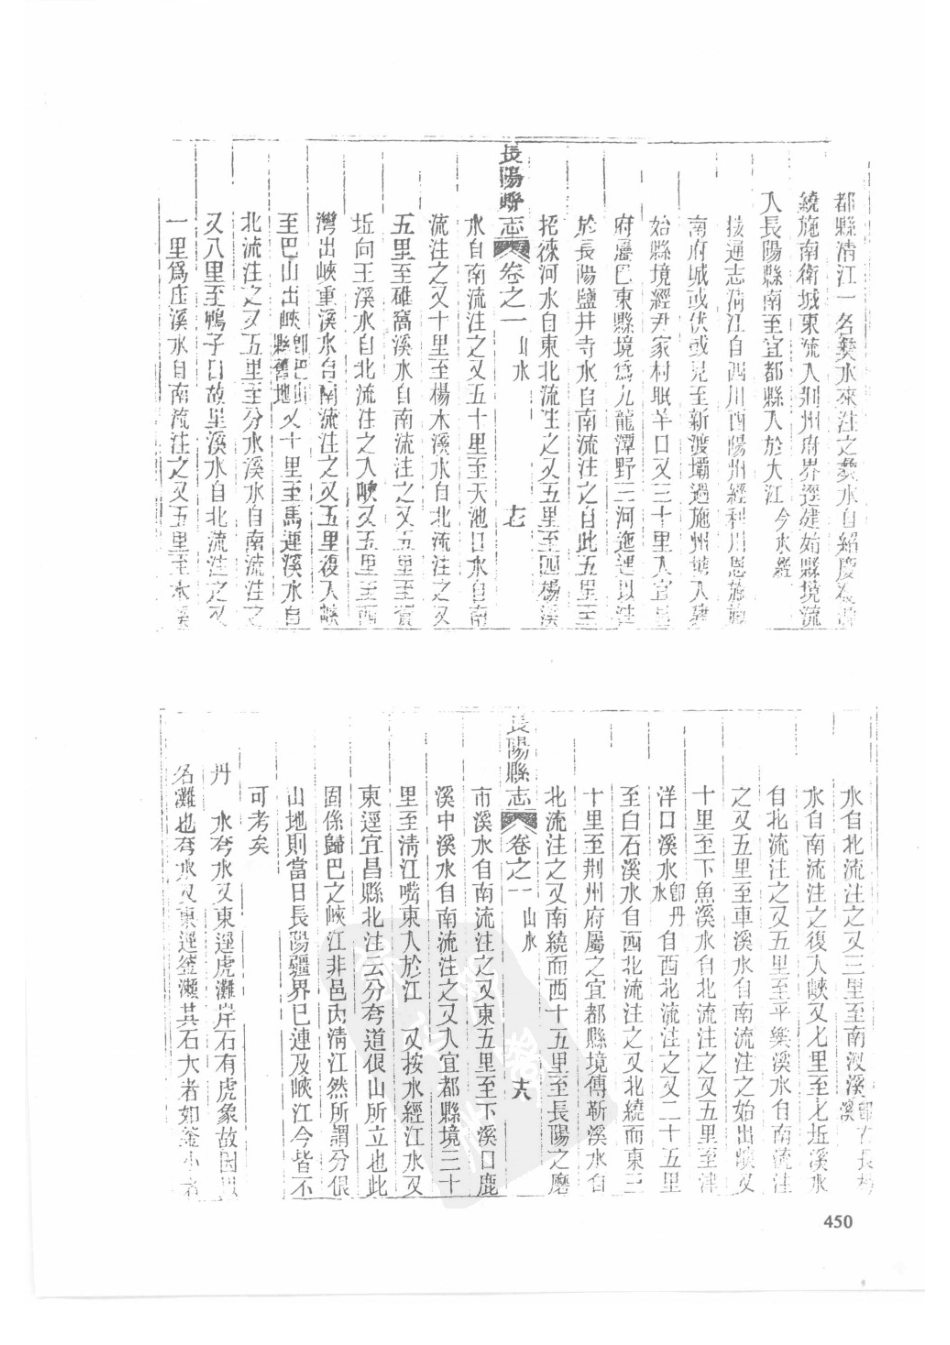 都縣清江一名夷水來注之夷水自紹慶
繞施南衛城東流入荆州府界逕建始縣境流
入長陽縣南至宜都縣入於大江 今水經
按通志清江自四川酉陽州經利川恩施
南府城或伏或見至新渡壩過施州塘入建
始縣境經尹家村眠羊口又三十里入宜
府屬巴東縣境爲九龍潭野三河迤邐以注
於長陽鹽井寺水自南流注之自此五里至
招徠河水自東北流注之又五里至 楊溪
長陽縣志 卷之一 山水 十七
水自南流注之又五十里至天池口水自南
流注之又十里至楊木溪水自北流注之又
五里至碓窩溪水自南流注之又五里至
坵向王溪水自北流注之入峽又五里至西
灣出峽重溪水自南流注之又五里復入峽
至巴山出峽 縣舊地 又十里至馬連溪水自
北流注之又五里至分水溪水自南流注之
又八里至鴨子口故里溪水自北流注之又
一里爲庄溪水自南流注之又五里至 溪
水自北流注之又三里至南汊溪
水自南流注之復入峽又七里至七坵溪水
自北流注之又五里至平樂溪水自南流注
之又五里至車溪水自南流注之始出峽又
十里至下魚溪水自北流注之又五里至津
洋口溪水 卽丹水 自西北流注之又二十五里
至白石溪水自西北流注之又北繞而東三
十里至荆州府屬之宜都縣境傅新溪水自
北流注之又南繞而西十五里至長陽之磨
長陽縣志 卷之一 山水 十八
市溪水自南流注之又東五里至下溪口鹿
溪中溪水自南流注之又入宜都縣境三十
里至清江嘴東入於江 又按水經江水又
東逕宜昌縣北注云分夷道佷山所立也此
固係歸巴之峽江非邑內清江然所謂分佷
山地則當日長陽疆界已連及峽江今皆不
可考矣
丹 水夷水又東逕虎灘岸石有虎象故因以
名灘也夷水又東逕釜瀨其石大者如釜小者
450